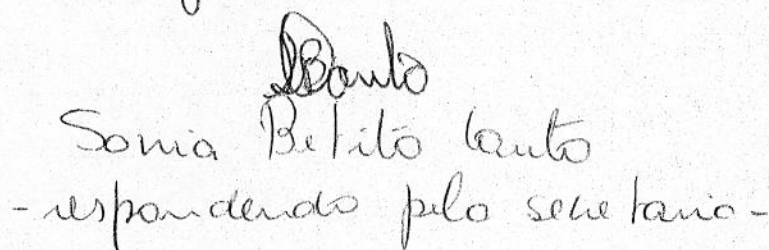 Sonia Belitò Canto
- respondendo pelo secretario -